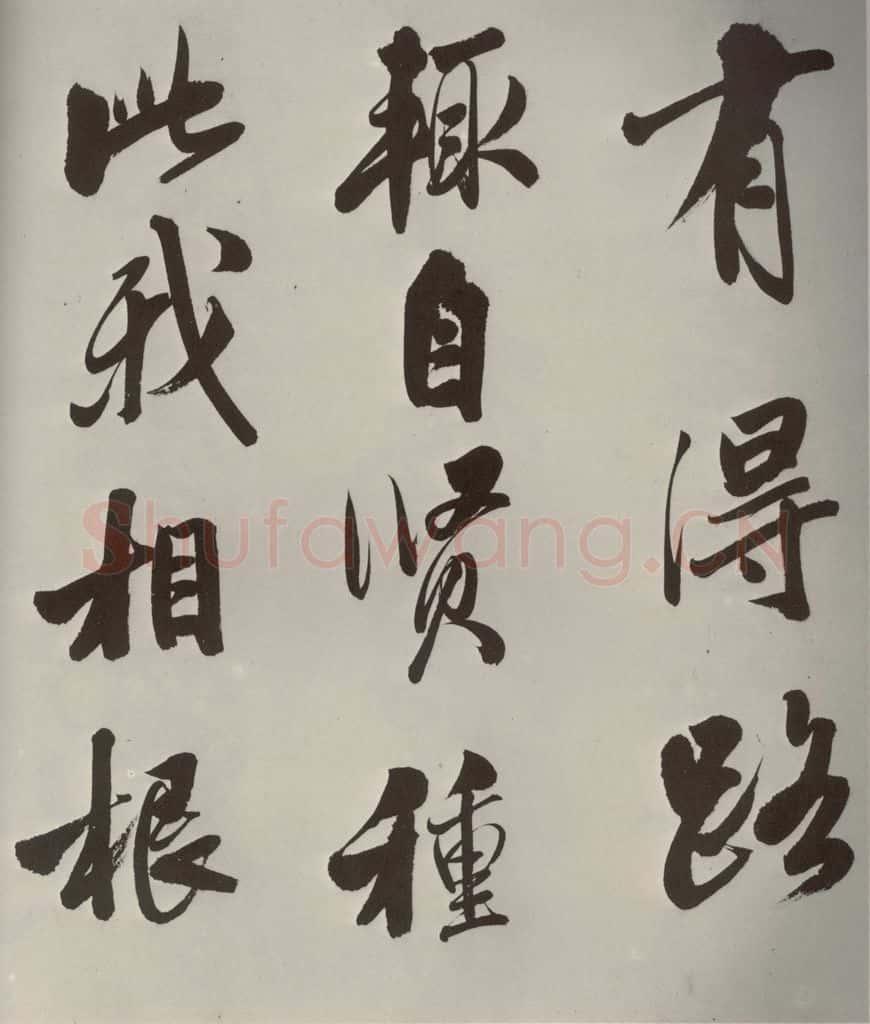 有得路
輙自贤種
此我相根
Shufawang.CN